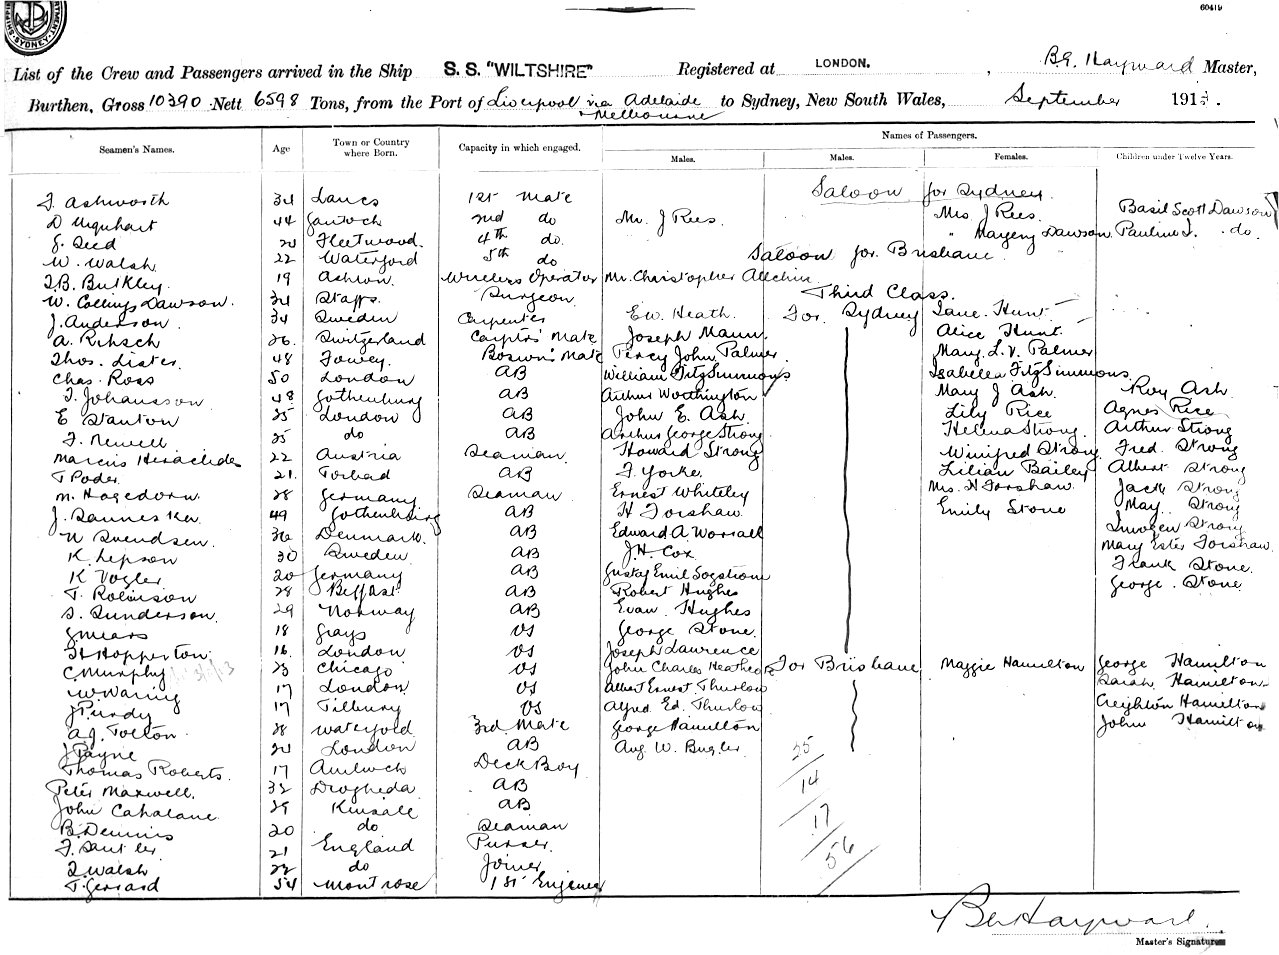 60419
List of the Crew and Passengers arrived in the Ship S. S. "WILTSHIRE" Registered at LONDON. , B.G. Hayward Master,
Burthen, Gross 10390 Nett 6598 Tons, from the Port of Liverpool via Adelaide & Melbourne to Sydney, New South Wales, September 191
Seamen's Names. Age Town or Country where Born. Capacity in which engaged. Names of Passengers.
Males. Males. Females. Children under Twelve Years.
Saloon for Sydney.
J. Ashworth 34 Lancs 1st Mate
D Urquhart 44 2nd do Mr. J Rees. Mrs J Rees. Basil Scott Dawson
Seed Fleetwood. 4th do. " Dawson Pauline I. do.
W. Walsh 22 Waterford 5th do Saloon for Brisbane
Bulkley. 19 Ashton. Wireless Operator Mr. Christopher Allchin
W. Collings Dawson. 34 Staffs. Surgeon. Third Class.
J. Anderson 34 Sweden Carpenter E.W. Heath. For Sydney Jane Hunt
A. 26. Switzerland Carptrs Mate Joseph Mann. Alice Hunt
Thos. Lister. 48 Fowey. Boswns Mate Percy John Palmer Mary L.V. Palmer
Chas. Ross 50 London AB William FitzSimmons Isabella FitzSimmons
J. Johansson 48 Gothenburg AB Arthur Worthington Mary J Ash. Roy Ash
E Stanton 25 London AB John E. Ash Lily Rice Agnes Rice
J. Newell 25 do AB Arthur George Strong Helena Strong. Arthur Strong
Marcus Heraclides 22 Austria Seaman. Howard Strong Winifred Strong Fred. Strong
T Poder. 21. AB J. Yorke. Lilian Bailey Albert Strong
M. Hagedorn. 28 Germany Seaman. Ernest Whiteley Mrs. H Forshaw. Jack Strong
J. 49 Gothenburg AB H Forshaw Emily Stone May Strong
N Svendsen. 36 Denmark. AB Edward A. Worrall Imogen Strong
K. Jepson 30 Sweden AB J.H. Cox Mary Ester Forshaw
K Vogler 20 Germany AB Gustaf Emil Frank Stone.
T. Robinson 28 Belfast AB Robert Hughes George. Stone
S. Gunderson. 29 Norway AB Evan Hughes
G. Mears 18 Grays OS George Stone.
H Hopperton. 16. London OS Joseph Lawrence
C Murphy 23 Chicago OS John Charles For Brisbane Maggie Hamilton George Hamilton
W. Waring 17 London OS Albert Ernest Thurlow Sarah Hamilton
J Purdy 17 Tilbury OS Alfred. Ed. Thurlow Creighton Hamilton
A.J. Totton. 28 Waterford 3rd. Mate George Hamilton John Hamilton
J Payne London AB Aug W. Bugler 25
Thomas Roberts. 17 Amlwch Deck Boy
Peter Maxwell. 32 Drogheda. AB 14
John Cahalane 29 Kinsale AB
B. Dennis 20 do Seaman 17
J. 21 England Purser.
J. Walsh 22 do Joiner 56
T. Gerrard 54 Montrose 1st Engineer
B.G. Hayward.
Master's Signature